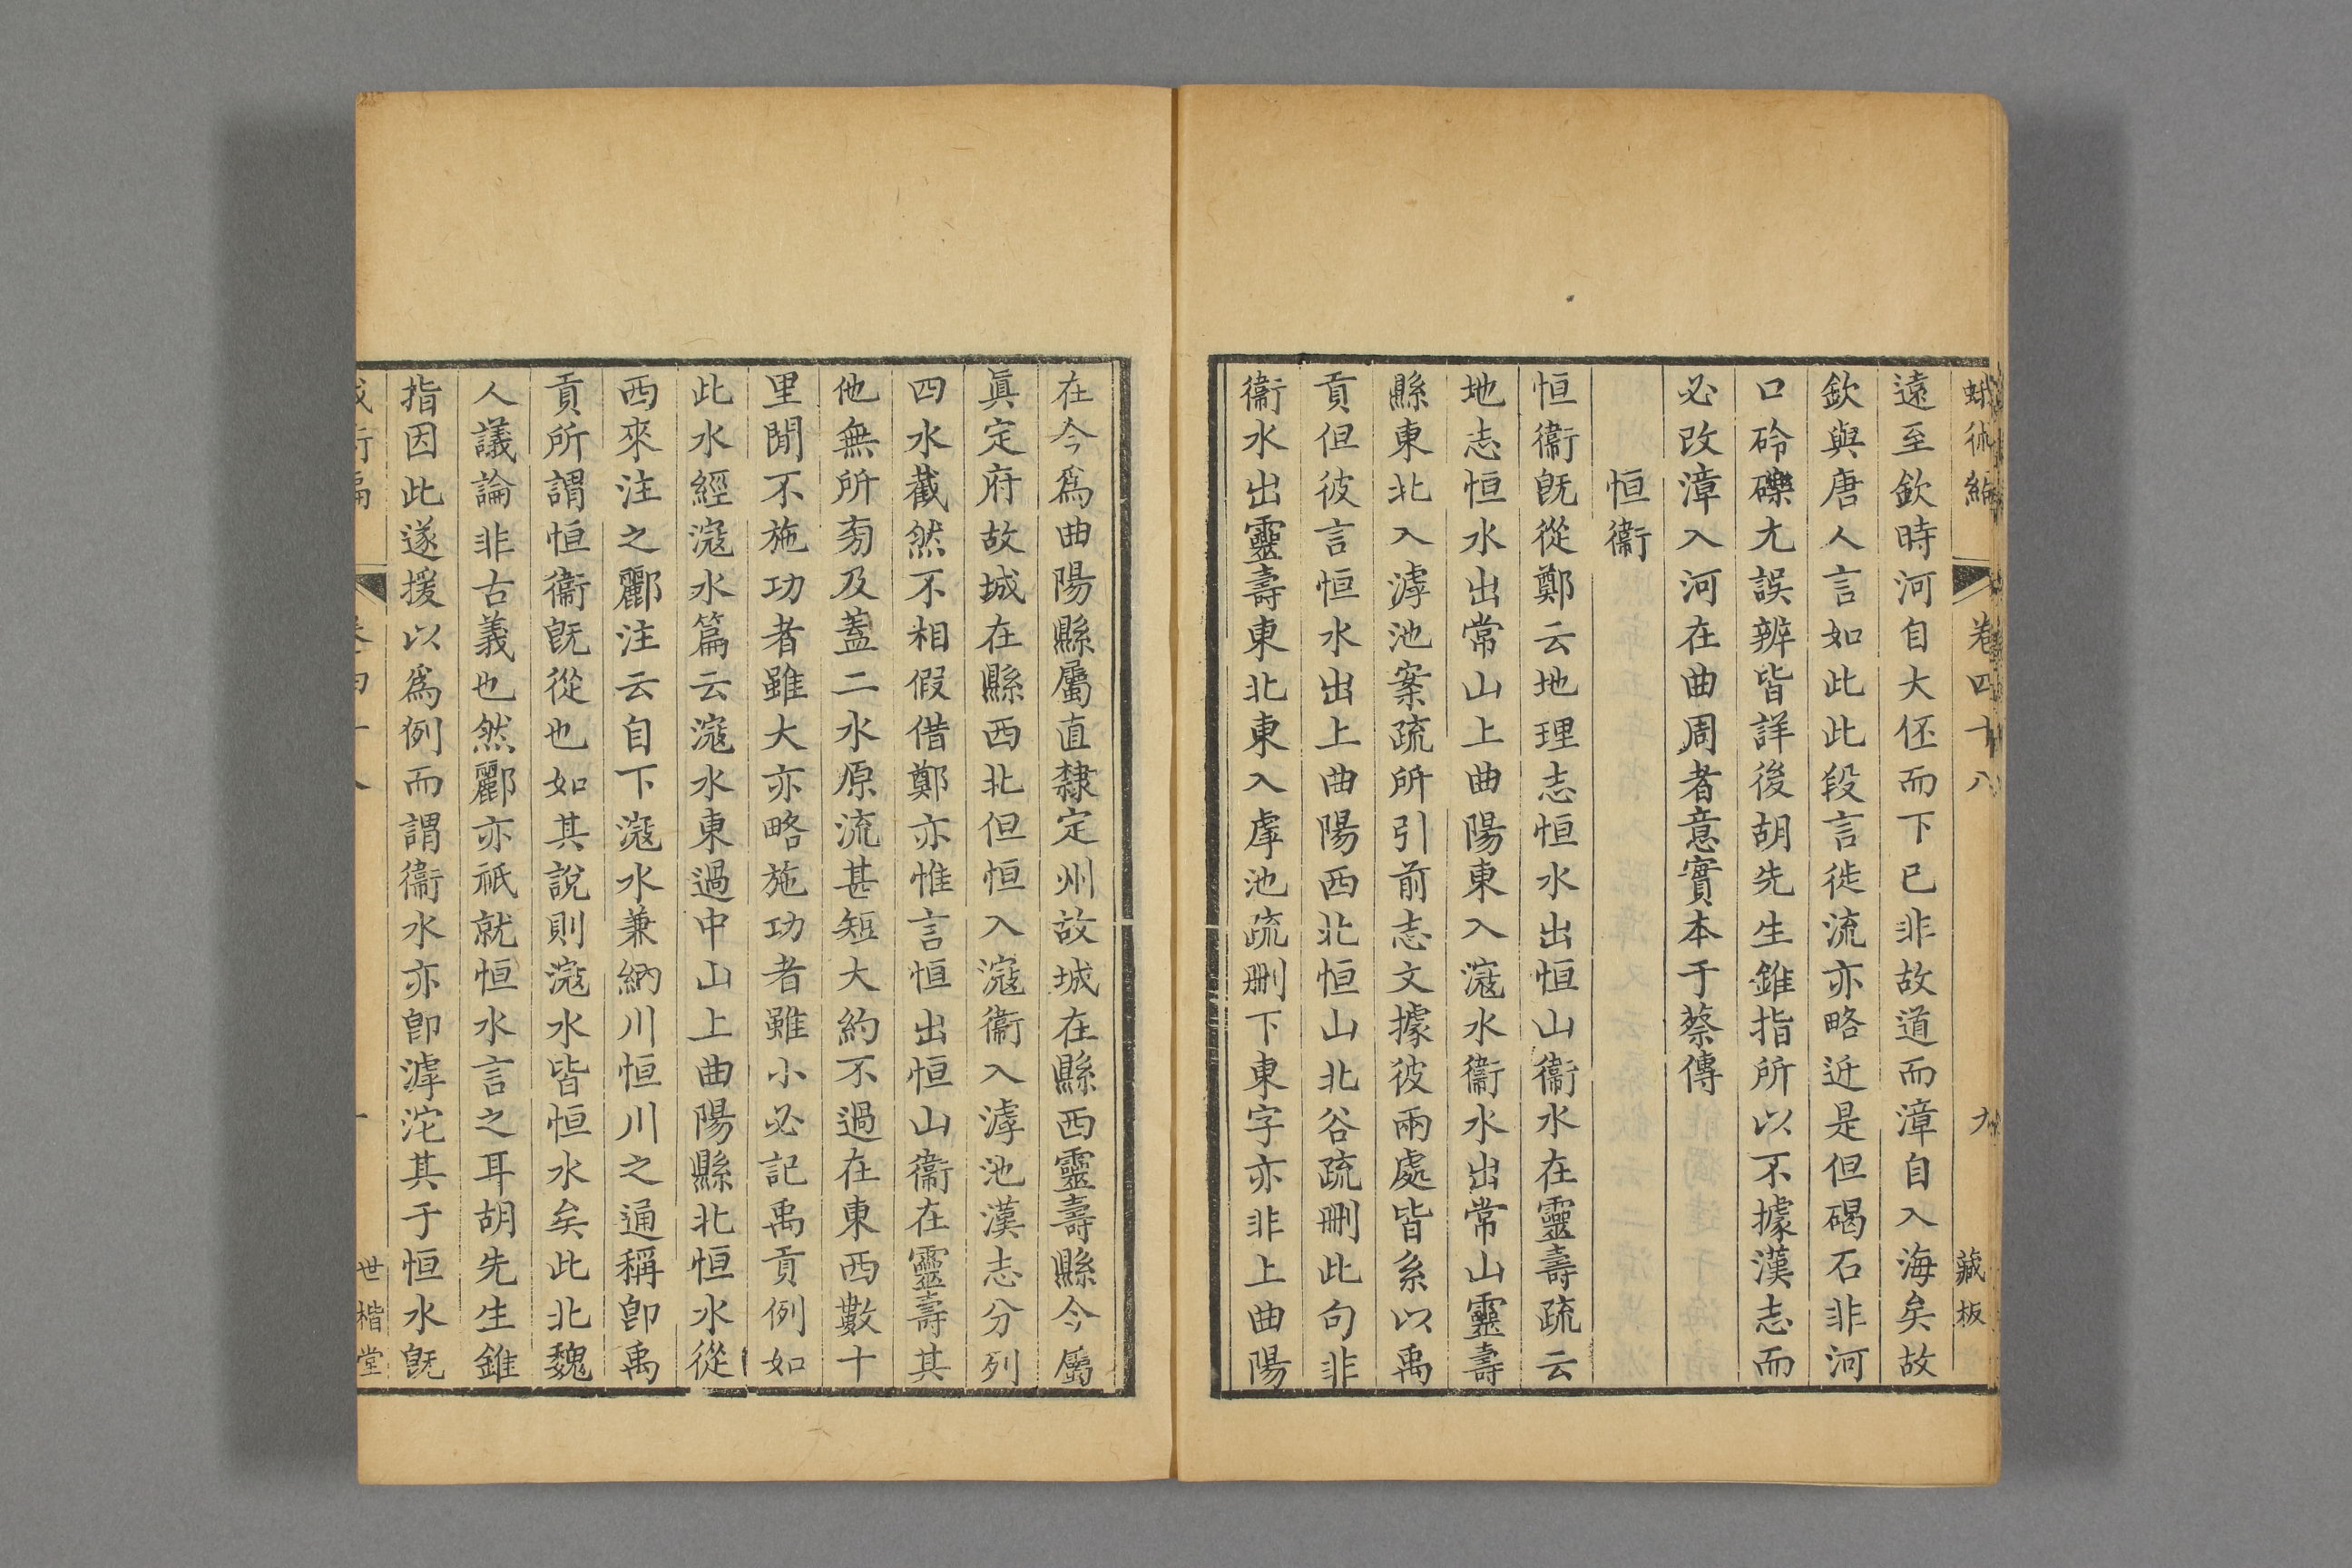 蛾術編 卷四十八 九 藏板
遠至欽時河自大伾而下已非故道而漳自入海矣故
欽與唐人言如此此段言徙流亦略近是但碣石非河
口砱礫尤誤辨皆詳後胡先生錐指所以不據漢志而
必改漳入河在曲周者意實本于蔡傳
恒衞
恒衞旣從鄭云地理志恒水出恒山衞水在靈壽疏云
地志恒水出常山上曲陽東入滱水衞水出常山靈壽
縣東北入滹池案疏所引前志文據彼兩處皆系以禹
貢但彼言恒水出上曲陽西北恒山北谷疏刪此句非
衞水出靈壽東北東入虖池疏刪下東字亦非上曲陽
在今爲曲陽縣屬直隸定州故城在縣西靈壽縣今屬
眞定府故城在縣西北但恒入滱衞入滹池漢志分列
四水截然不相假借鄭亦惟言恒出恒山衞在靈壽其
他無所旁及蓋二水原流甚短大約不過在東西數十
里閒不施功者雖大亦略施功者雖小必記禹貢例如
此水經滱水篇云滱水東過中山上曲陽縣北恒水從
西來注之酈注云自下滱水兼納川恒川之通稱卽禹
貢所謂恒衞旣從也如其說則滱水皆恒水矣此北魏
人議論非古義也然酈亦祇就恒水言之耳胡先生錐
指因此遂援以爲例而謂衞水亦卽滹沱其于恒水旣
世楷堂